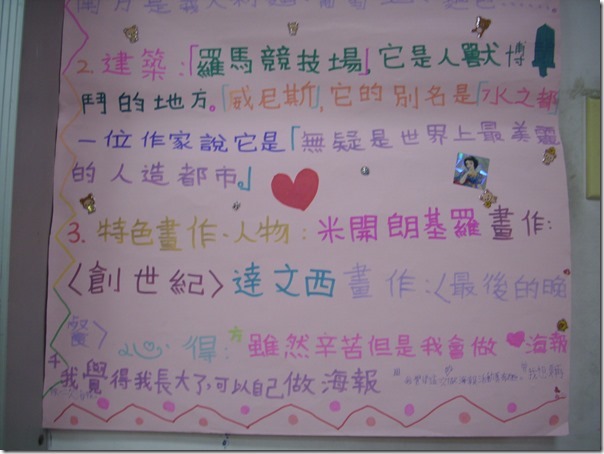 2. 建築:「羅馬競技場」,它是人獸博
鬥的地方。「威尼斯」,它的別名是「水之都
一位作家說它是「無疑是世界上最美麗
的人造都市。」
3. 特色畫作、人物:米開朗基羅畫作:
〈創世紀〉達文西畫作:〈最後的晚
餐〉心得:雖然辛苦但是我會做海報
我覺得我長大了,可以自己做海報